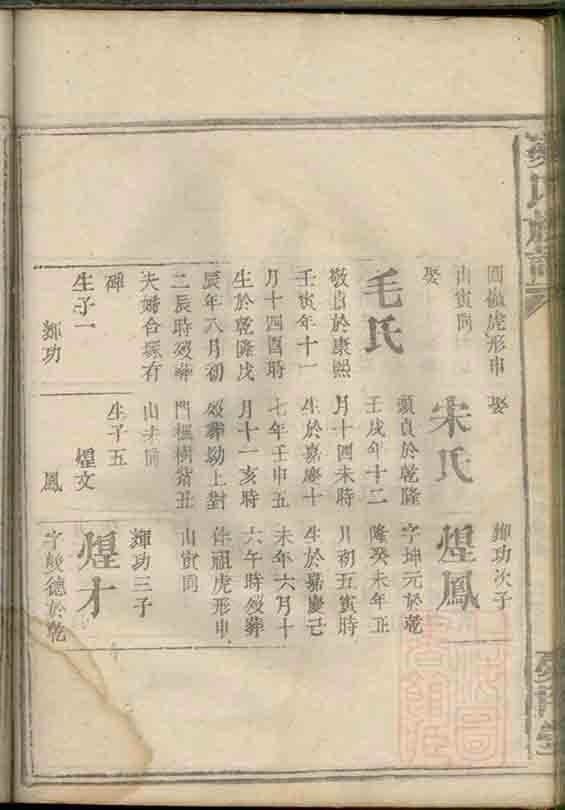 氏族譜
圓嶺虎形申
山寅向
娶
毛氏
敬貞於康熙
壬寅年十一
月十四酉時
生於乾隆戊
辰年八月初
二辰時歿葬
夫婦合塚有
碑
生子一
輝功
娶
宋氏
順貞於乾隆
壬戌年十二
月十四未時
生於嘉慶十
七年壬申五
月十一亥時
歿葬坳上對
門楓樹窩丑
山未向
生子五
煌文
鳳
輝功次子
煌鳳
字坤元於乾
隆癸未年正
月初五寅時
生於嘉慶己
未年六月十
六午時歿葬
祖虎形申
山寅向
輝功三子
煌才
字峻德於乾